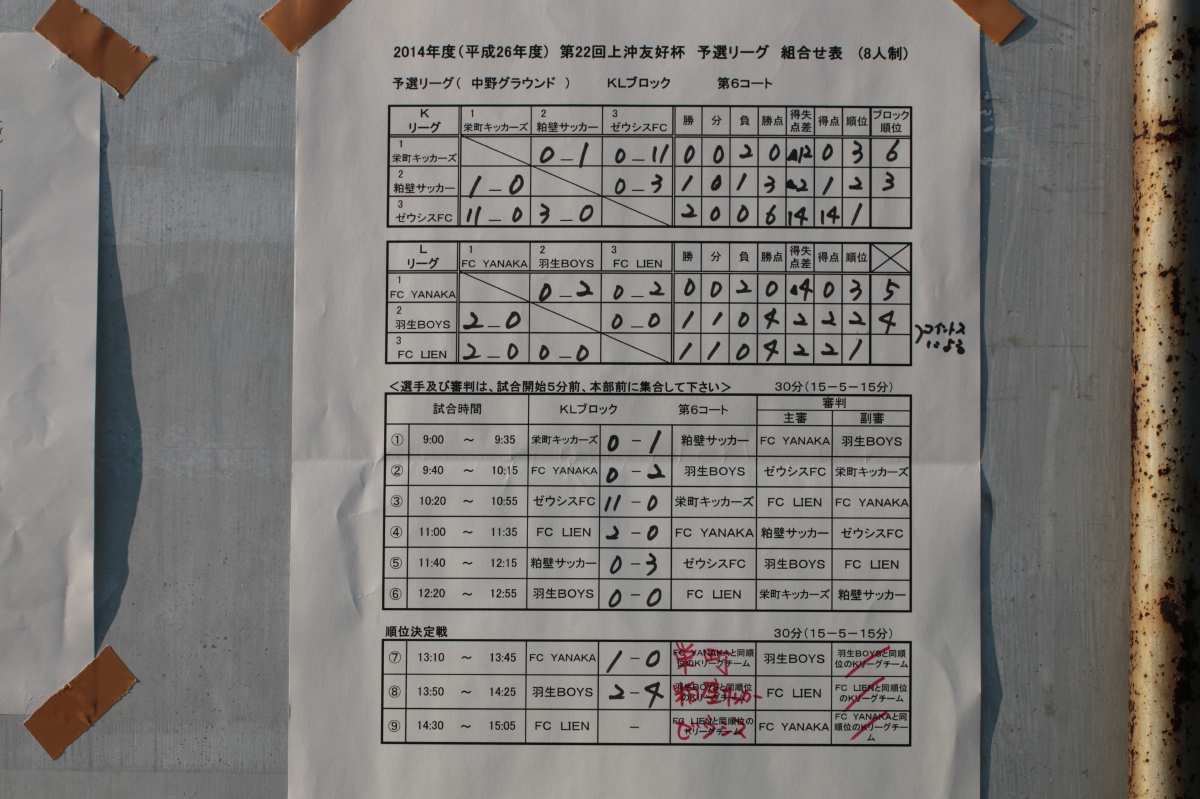 2014年度（平成26年度） 第22回上沖友好杯 予選リーグ 組合せ表 （8人制）
予選リーグ（ 中野グラウンド ） KLブロック 第6コート
K リーグ 1 栄町キッカーズ 2 粕壁サッカー 3 ゼウシスFC 勝 分 負 勝点 得失点差 得点 順位 ブロック順位
1 栄町キッカーズ 0－1 0－11 0 0 2 0 ▲12 0 3 6
2 粕壁サッカー 1－0 0－3 1 0 1 3 ▲2 1 2 3
3 ゼウシスFC 11－0 3－0 2 0 0 6 14 14 1
L リーグ 1 FC YANAKA 2 羽生BOYS 3 FC LIEN 勝 分 負 勝点 得失点差 得点 順位
1 FC YANAKA 0－2 0－2 0 0 2 0 ▲4 0 3 5
2 羽生BOYS 2－0 0－0 1 1 0 4 2 2 2 4
3 FC LIEN 2－0 0－0 1 1 0 4 2 2 1
コイントス
による
＜選手及び審判は、試合開始5分前、本部前に集合して下さい＞ 30分（15－5－15分）
試合時間 KLブロック 第6コート 審判
主審 副審
① 9:00 ～ 9:35 栄町キッカーズ 0－1 粕壁サッカー FC YANAKA 羽生BOYS
② 9:40 ～ 10:15 FC YANAKA 0－2 羽生BOYS ゼウシスFC 栄町キッカーズ
③ 10:20 ～ 10:55 ゼウシスFC 11－0 栄町キッカーズ FC LIEN FC YANAKA
④ 11:00 ～ 11:35 FC LIEN 2－0 FC YANAKA 粕壁サッカー ゼウシスFC
⑤ 11:40 ～ 12:15 粕壁サッカー 0－3 ゼウシスFC 羽生BOYS FC LIEN
⑥ 12:20 ～ 12:55 羽生BOYS 0－0 FC LIEN 栄町キッカーズ 粕壁サッカー
順位決定戦 30分（15－5－15分）
⑦ 13:10 ～ 13:45 FC YANAKA 1－0 FC YANAKAと同順位のKリーグチーム 栄町 羽生BOYS 羽生BOYSと同順位のKリーグチーム
⑧ 13:50 ～ 14:25 羽生BOYS 2－4 羽生BOYSと同順位のKリーグチーム 粕壁サッカー FC LIEN FC LIENと同順位のKリーグチーム
⑨ 14:30 ～ 15:05 FC LIEN － FC LIENと同順位のKリーグチーム ゼウシス FC YANAKA FC YANAKAと同順位のKリーグチーム